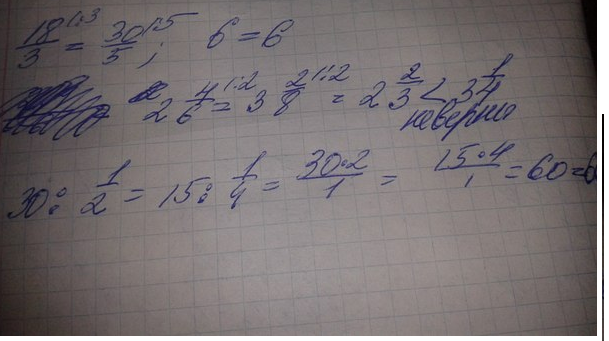 18/3 |:3 = 30/5 |:5 ; 6 = 6
2 4/6 |:2 = 3 2/8 |:2 = 2 2/3 < 3 1/4
наверно
30 : 1/2 = 15 : 1/4 = 30·2/1 = 15·4/1 = 60 = 6